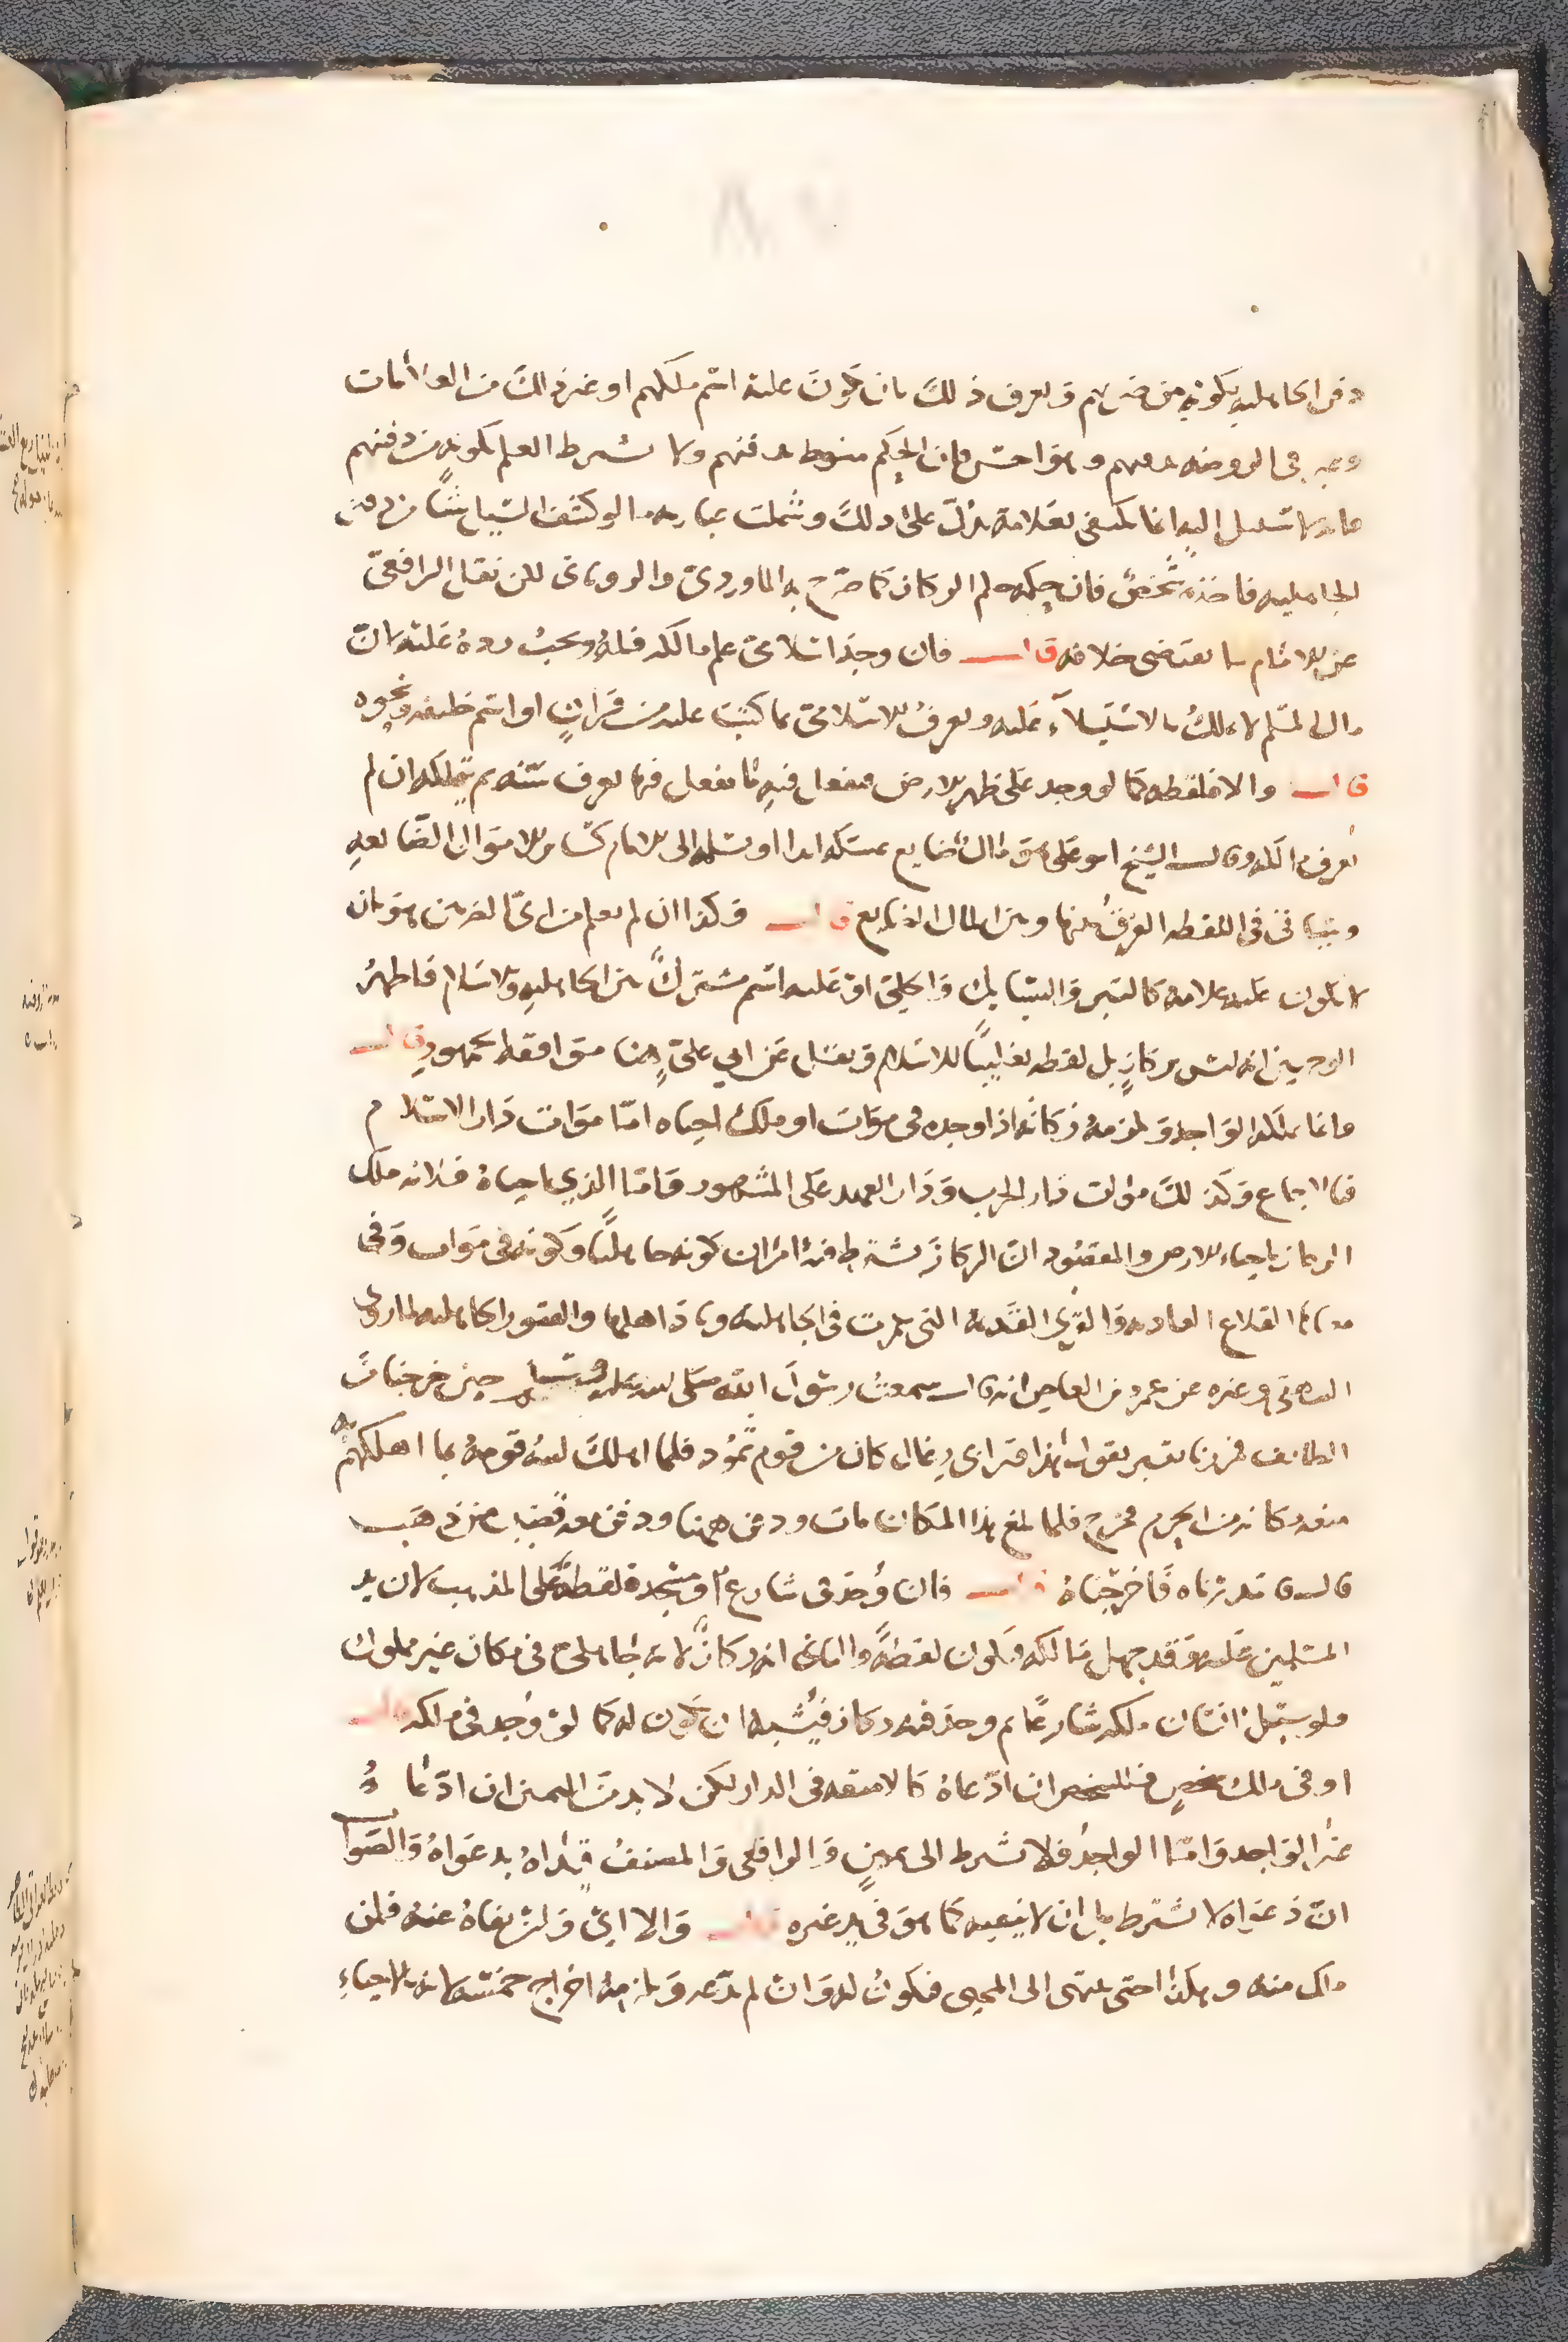 دفن الجاهلية بكونه من ضربهم ويعرف ذلك بان يكون عليه اسم ملكهم او غير ذلك من العلامات
في الروضة بدفنهم وهو احسن فان الحكم منوط بدفنهم ولا يشترط العلم بكونه من دفنهم
فانه لا سبيل اليه انما يكتفى بعلامة تدل على ذلك وشملت عبارته ما لو كشف السيل شيئا من دفن
الجاهلية فاخذه شخص فان حكمه حكم الركاز كما صرح به الماوردي والروياني لكن نقل الرافعي
عن الامام ما يقتضي خلافه قال فان وجد اسلامي علم مالكه فله ويجب رده عليه لان
مال المسلم لا يملك بالاستيلاء عليه ويعرف الاسلامي بما كتب عليه من قران او اسم خليفة ونحوه
قال والا فلقطة كما لو وجد على ظهر الارض فيفعل فيه ما يفعل فيها يعرف سنة ثم يتملكه ان لم
يعرف مالكه وقال الشيخ ابو علي هو مال ضايع يمسكه ابدا او يسلمه الى الامام كساير الاموال الضايعة
وسياتي في اللقطة الفرق بينها وبين المال الضايع قال وكذا ان لم يعلم من اي الضربين هو بان
لا يكون عليه علامة كالتبر والسبايك والحلي او عليه اسم مشترك بين الجاهلية والاسلام فاظهر
الوجهين انه ليس بركاز بل لقطة تغليبا للاسلام ونقل عن ابي علي هنا موافقة الجمهور قال
وانما يملكه الواجد ويلزمه زكاته اذا وجده في موات او ملك احياه اما موات دار الاسلام
فبالاجماع وكذلك موات دار الحرب ودار العهد على المشهور واما الذي احياه فلانه ملك
الركاز باحياء الارض والمقصود ان الركاز يشترط فيه امران كونه جاهليا وكونه في موات وفي
معناها القلاع العادية والقرى القديمة التي عمرت في الجاهلية وباد اهلها والقبور الجاهلية لما روى
البيهقي وغيره عن عمرو بن العاص انه قال سمعت رسول الله صلى الله عليه وسلم حين خرجنا
الطايف فمررنا بقبر يقول هذا قبر ابي رغال كان من قوم ثمود فلما اهلك الله قومه بما اهلكهم به
منعه مكانه من الحرم فخرج فلما بلغ هذا المكان مات ودفن ههنا ودفن معه قضيب من ذهب
قال فابتدرناه فاخرجناه قال فان وجد في شارع او مسجد فلقطة على المذهب لان يد
المسلمين عليه وقد جهل مالكه فيكون لقطة والثاني انه ركاز لانه جاهلي في مكان غير مملوك
ولو سبل انسان ملكه شارعا ثم وجد فيه ركاز فيشبه ان يكون له كما لو وجد في ملكه قال
او في ملك شخص فللشخص ان ادعاه كالامتعة في الدار لكن لا بد من اليمين ان ادعاه
عند الواجد واما الواجد فلا يشترط الى يمين والرافعي والمصنف قيداه بدعواه والصواب
ان دعواه لا تشترط بل ان لا ينفيه كما هو في يد غيره قال والا اي ولئن نفاه عنه فلمن
ملك منه وهكذا حتى ينتهي الى المحيي فيكون له وان لم يدعه ويلزمه اخراج خمسه لانه بالاحياء